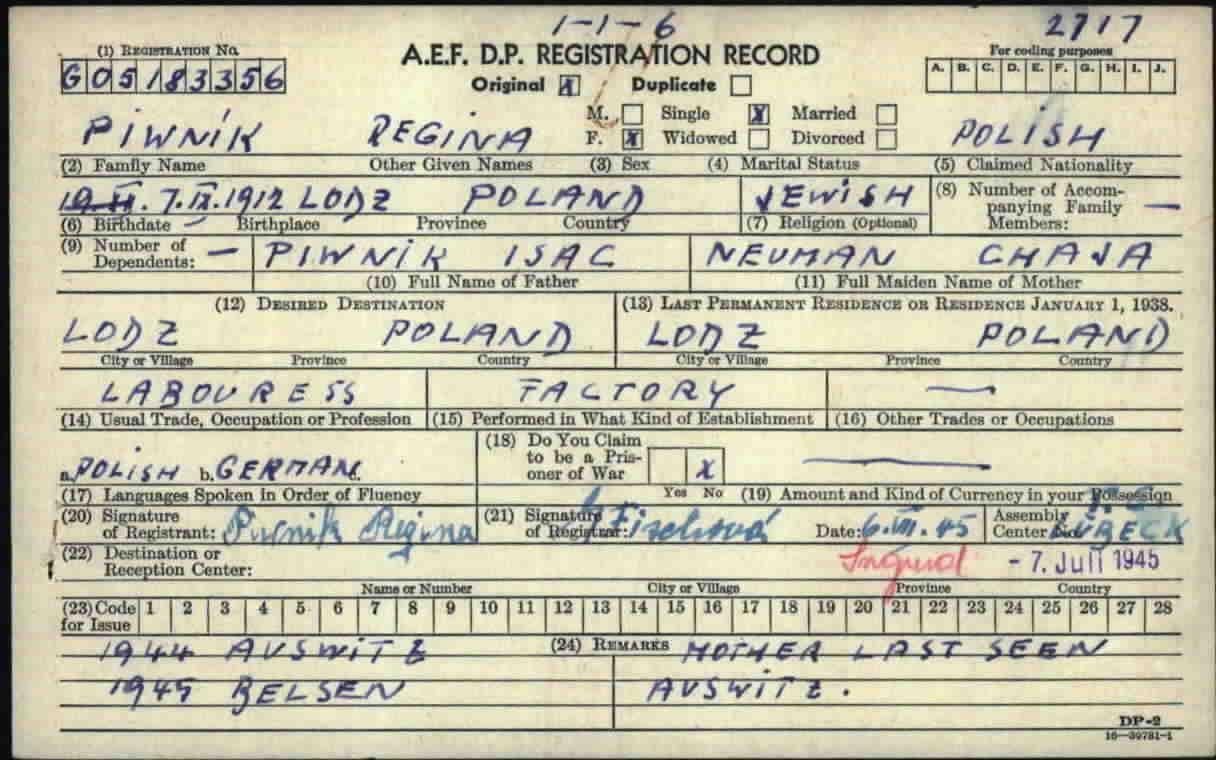 1-1-6 2717
(1) REGISTRATION No.
G05183356
A.E.F. D.P. REGISTRATION RECORD
Original X Duplicate
For coding purposes
A. B. C. D. E. F. G. H. I. J.
M. Single X Married
F. X Widowed Divorced
PIWNIK REGINA POLISH
(2) Family Name Other Given Names (3) Sex (4) Marital Status (5) Claimed Nationality
7.IX.1912 LODZ POLAND JEWISH
(8) Number of Accompanying Family Members: —
(6) Birthdate Birthplace Province Country (7) Religion (Optional)
(9) Number of Dependents: — PIWNIK ISAC NEUMAN CHAJA
(10) Full Name of Father (11) Full Maiden Name of Mother
(12) DESIRED DESTINATION (13) LAST PERMANENT RESIDENCE OR RESIDENCE JANUARY 1, 1938.
LODZ POLAND LODZ POLAND
City or Village Province Country City or Village Province Country
LABOURESS FACTORY —
(14) Usual Trade, Occupation or Profession (15) Performed in What Kind of Establishment (16) Other Trades or Occupations
a. POLISH b. GERMAN c.
(18) Do You Claim to be a Prisoner of War X —
(17) Languages Spoken in Order of Fluency Yes No (19) Amount and Kind of Currency in your Possession
(20) Signature of Registrant: Piwnik Regina (21) Signature of Registrar: Date: 6.VII.45 Assembly Center No. LÜBECK
(22) Destination or Reception Center: - 7. Juli 1945
Name or Number City or Village Province Country
(23) Code for Issue 1 2 3 4 5 6 7 8 9 10 11 12 13 14 15 16 17 18 19 20 21 22 23 24 25 26 27 28
1944 AUSWITZ (24) REMARKS MOTHER LAST SEEN
1945 BELSEN AUSWITZ.
DP-2
16-39781-1